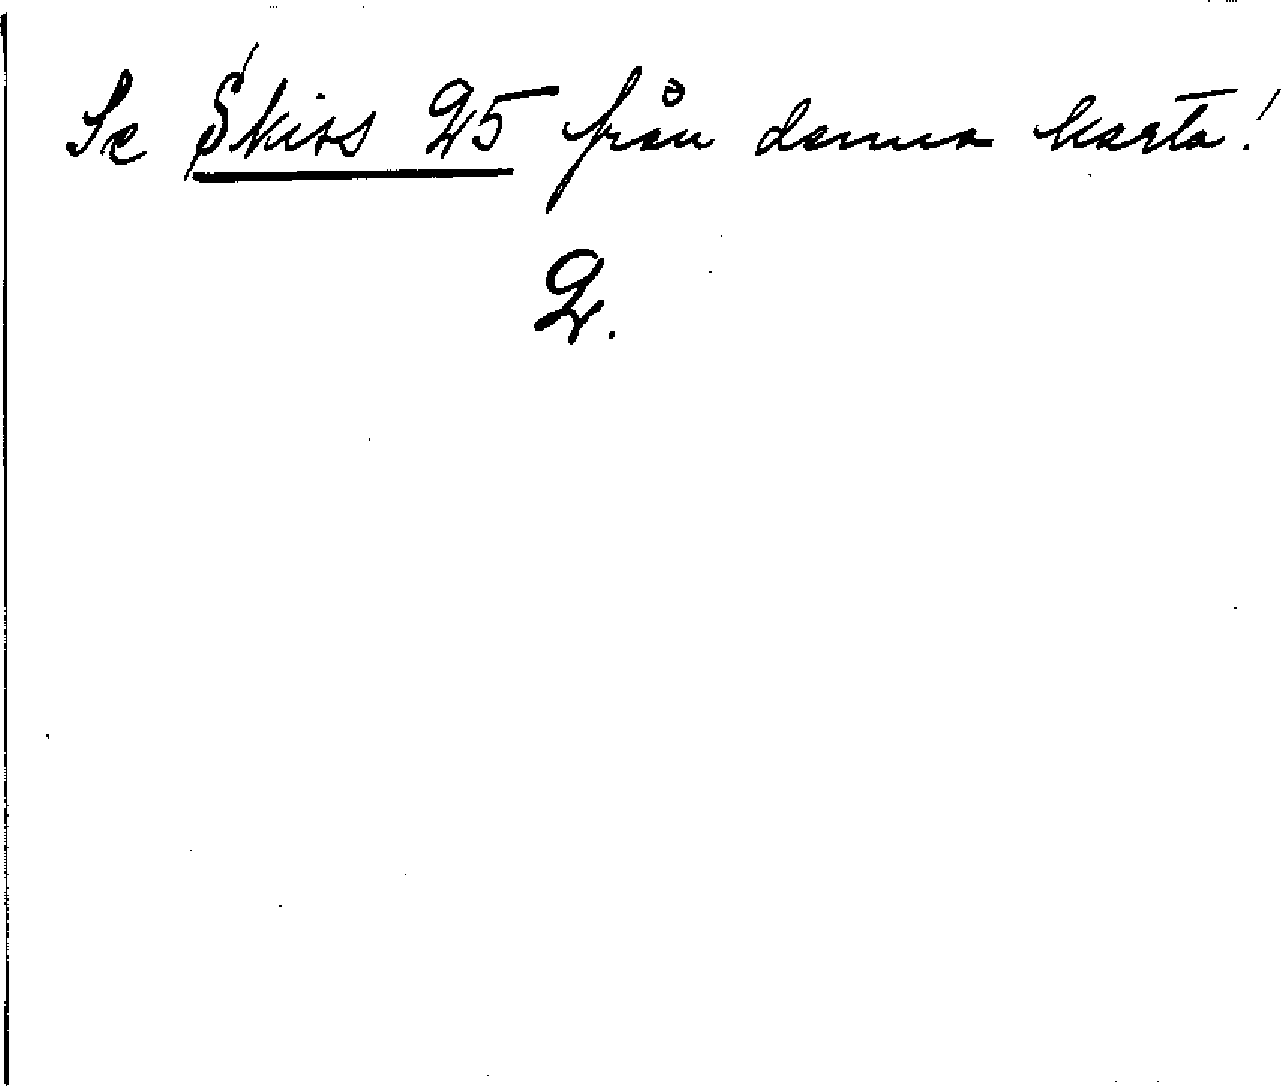 Se Skiss 25 från denna karta!
2.